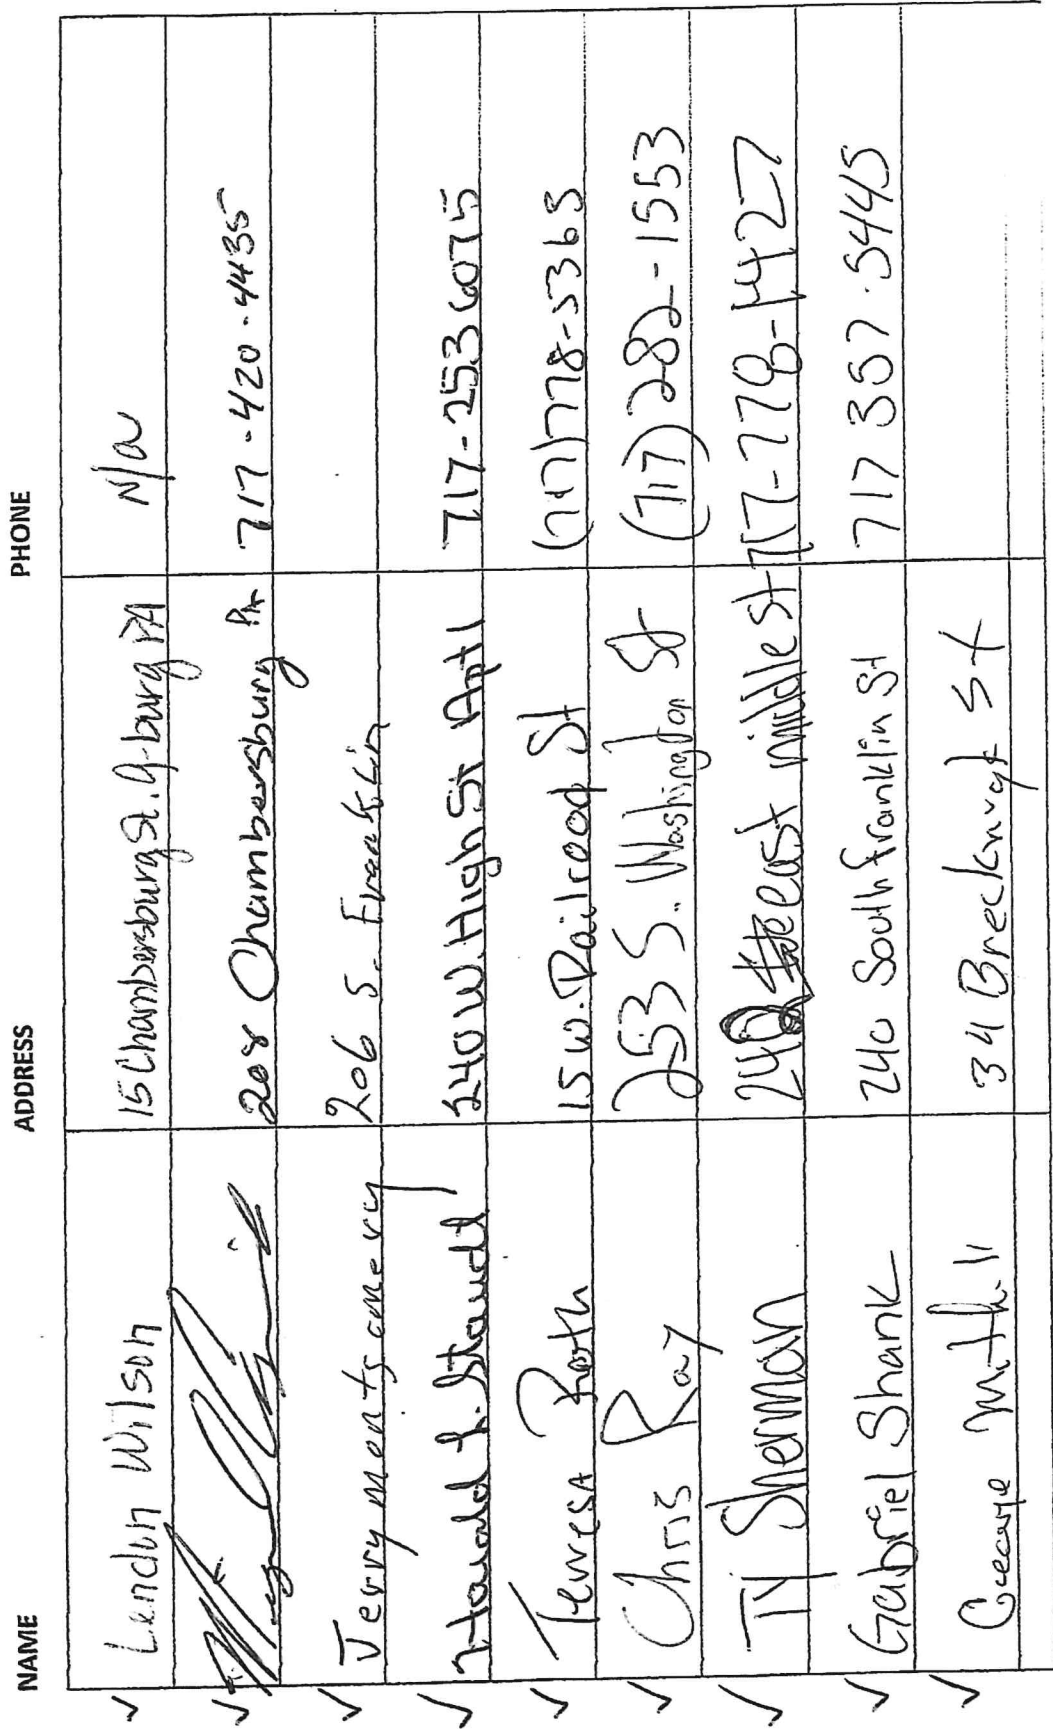 NAME ADDRESS PHONE
✓ Lendon Wilson 15 Chambersburg St. G-burg PA N/a
✓ 208 Chambersburg PA 717-420-4435
✓ Jerry montgomery 206 S. Franklin
✓ Harold L. Staudt 240 W. High St Apt 1 717-253 6075
✓ Teresa Roth 15 W. Railroad St (717) 778-5363
✓ Chris Ray 253 S. Washington St (717) 282-1553
✓ TJ Sherman 240 east middle st 717-778-1427
✓ Gabriel Shank 240 South franklin St 717 357 5445
✓ George 34 St